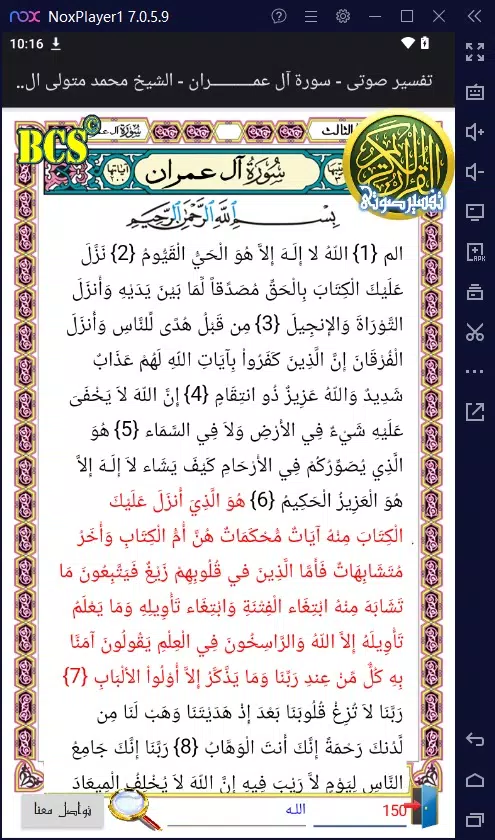 NoxPlayer1 7.0.5.9
10:16
تفسير صوتي - سورة آل عمـــــــران - الشيخ محمد متولى ال..
BCS©
سورة آل عمران
الثالث
القرآن الكريم
تفسير صوتي
آياتها
سُورَةُ آل عمران
بِسْمِ اللَّهِ الرَّحْمَنِ الرَّحِيمِ
الم {1} اللّهُ لا إِلَـهَ إِلاَّ هُوَ الْحَيُّ الْقَيُّومُ {2} نَزَّلَ
عَلَيْكَ الْكِتَابَ بِالْحَقِّ مُصَدِّقاً لِّمَا بَيْنَ يَدَيْهِ وَأَنزَلَ
التَّوْرَاةَ وَالإِنجِيلَ {3} مِن قَبْلُ هُدًى لِّلنَّاسِ وَأَنزَلَ
الْفُرْقَانَ إِنَّ الَّذِينَ كَفَرُواْ بِآيَاتِ اللّهِ لَهُمْ عَذَابٌ
شَدِيدٌ وَاللّهُ عَزِيزٌ ذُو انتِقَامٍ {4} إِنَّ اللّهَ لاَ يَخْفَىَ
عَلَيْهِ شَيْءٌ فِي الأَرْضِ وَلاَ فِي السَّمَاء {5} هُوَ
الَّذِي يُصَوِّرُكُمْ فِي الأَرْحَامِ كَيْفَ يَشَاء لاَ إِلَـهَ إِلاَّ
هُوَ الْعَزِيزُ الْحَكِيمُ {6} هُوَ الَّذِيَ أَنزَلَ عَلَيْكَ
الْكِتَابَ مِنْهُ آيَاتٌ مُّحْكَمَاتٌ هُنَّ أُمُّ الْكِتَابِ وَأُخَرُ
مُتَشَابِهَاتٌ فَأَمَّا الَّذِينَ في قُلُوبِهِمْ زَيْغٌ فَيَتَّبِعُونَ مَا
تَشَابَهَ مِنْهُ ابْتِغَاء الْفِتْنَةِ وَابْتِغَاء تَأْوِيلِهِ وَمَا يَعْلَمُ
تَأْوِيلَهُ إِلاَّ اللّهُ وَالرَّاسِخُونَ فِي الْعِلْمِ يَقُولُونَ آمَنَّا
بِهِ كُلٌّ مِّنْ عِندِ رَبِّنَا وَمَا يَذَّكَّرُ إِلاَّ أُوْلُواْ الألْبَابِ {7}
رَبَّنَا لاَ تُزِغْ قُلُوبَنَا بَعْدَ إِذْ هَدَيْتَنَا وَهَبْ لَنَا مِن
لَّدُنكَ رَحْمَةً إِنَّكَ أَنتَ الْوَهَّابُ {8} رَبَّنَا إِنَّكَ جَامِعُ
النَّاسِ لِيَوْمٍ لاَّ رَيْبَ فِيهِ إِنَّ اللّهَ لاَ يُخْلِفُ الْمِيعَادَ
تواصل معنا
الله
150
APK